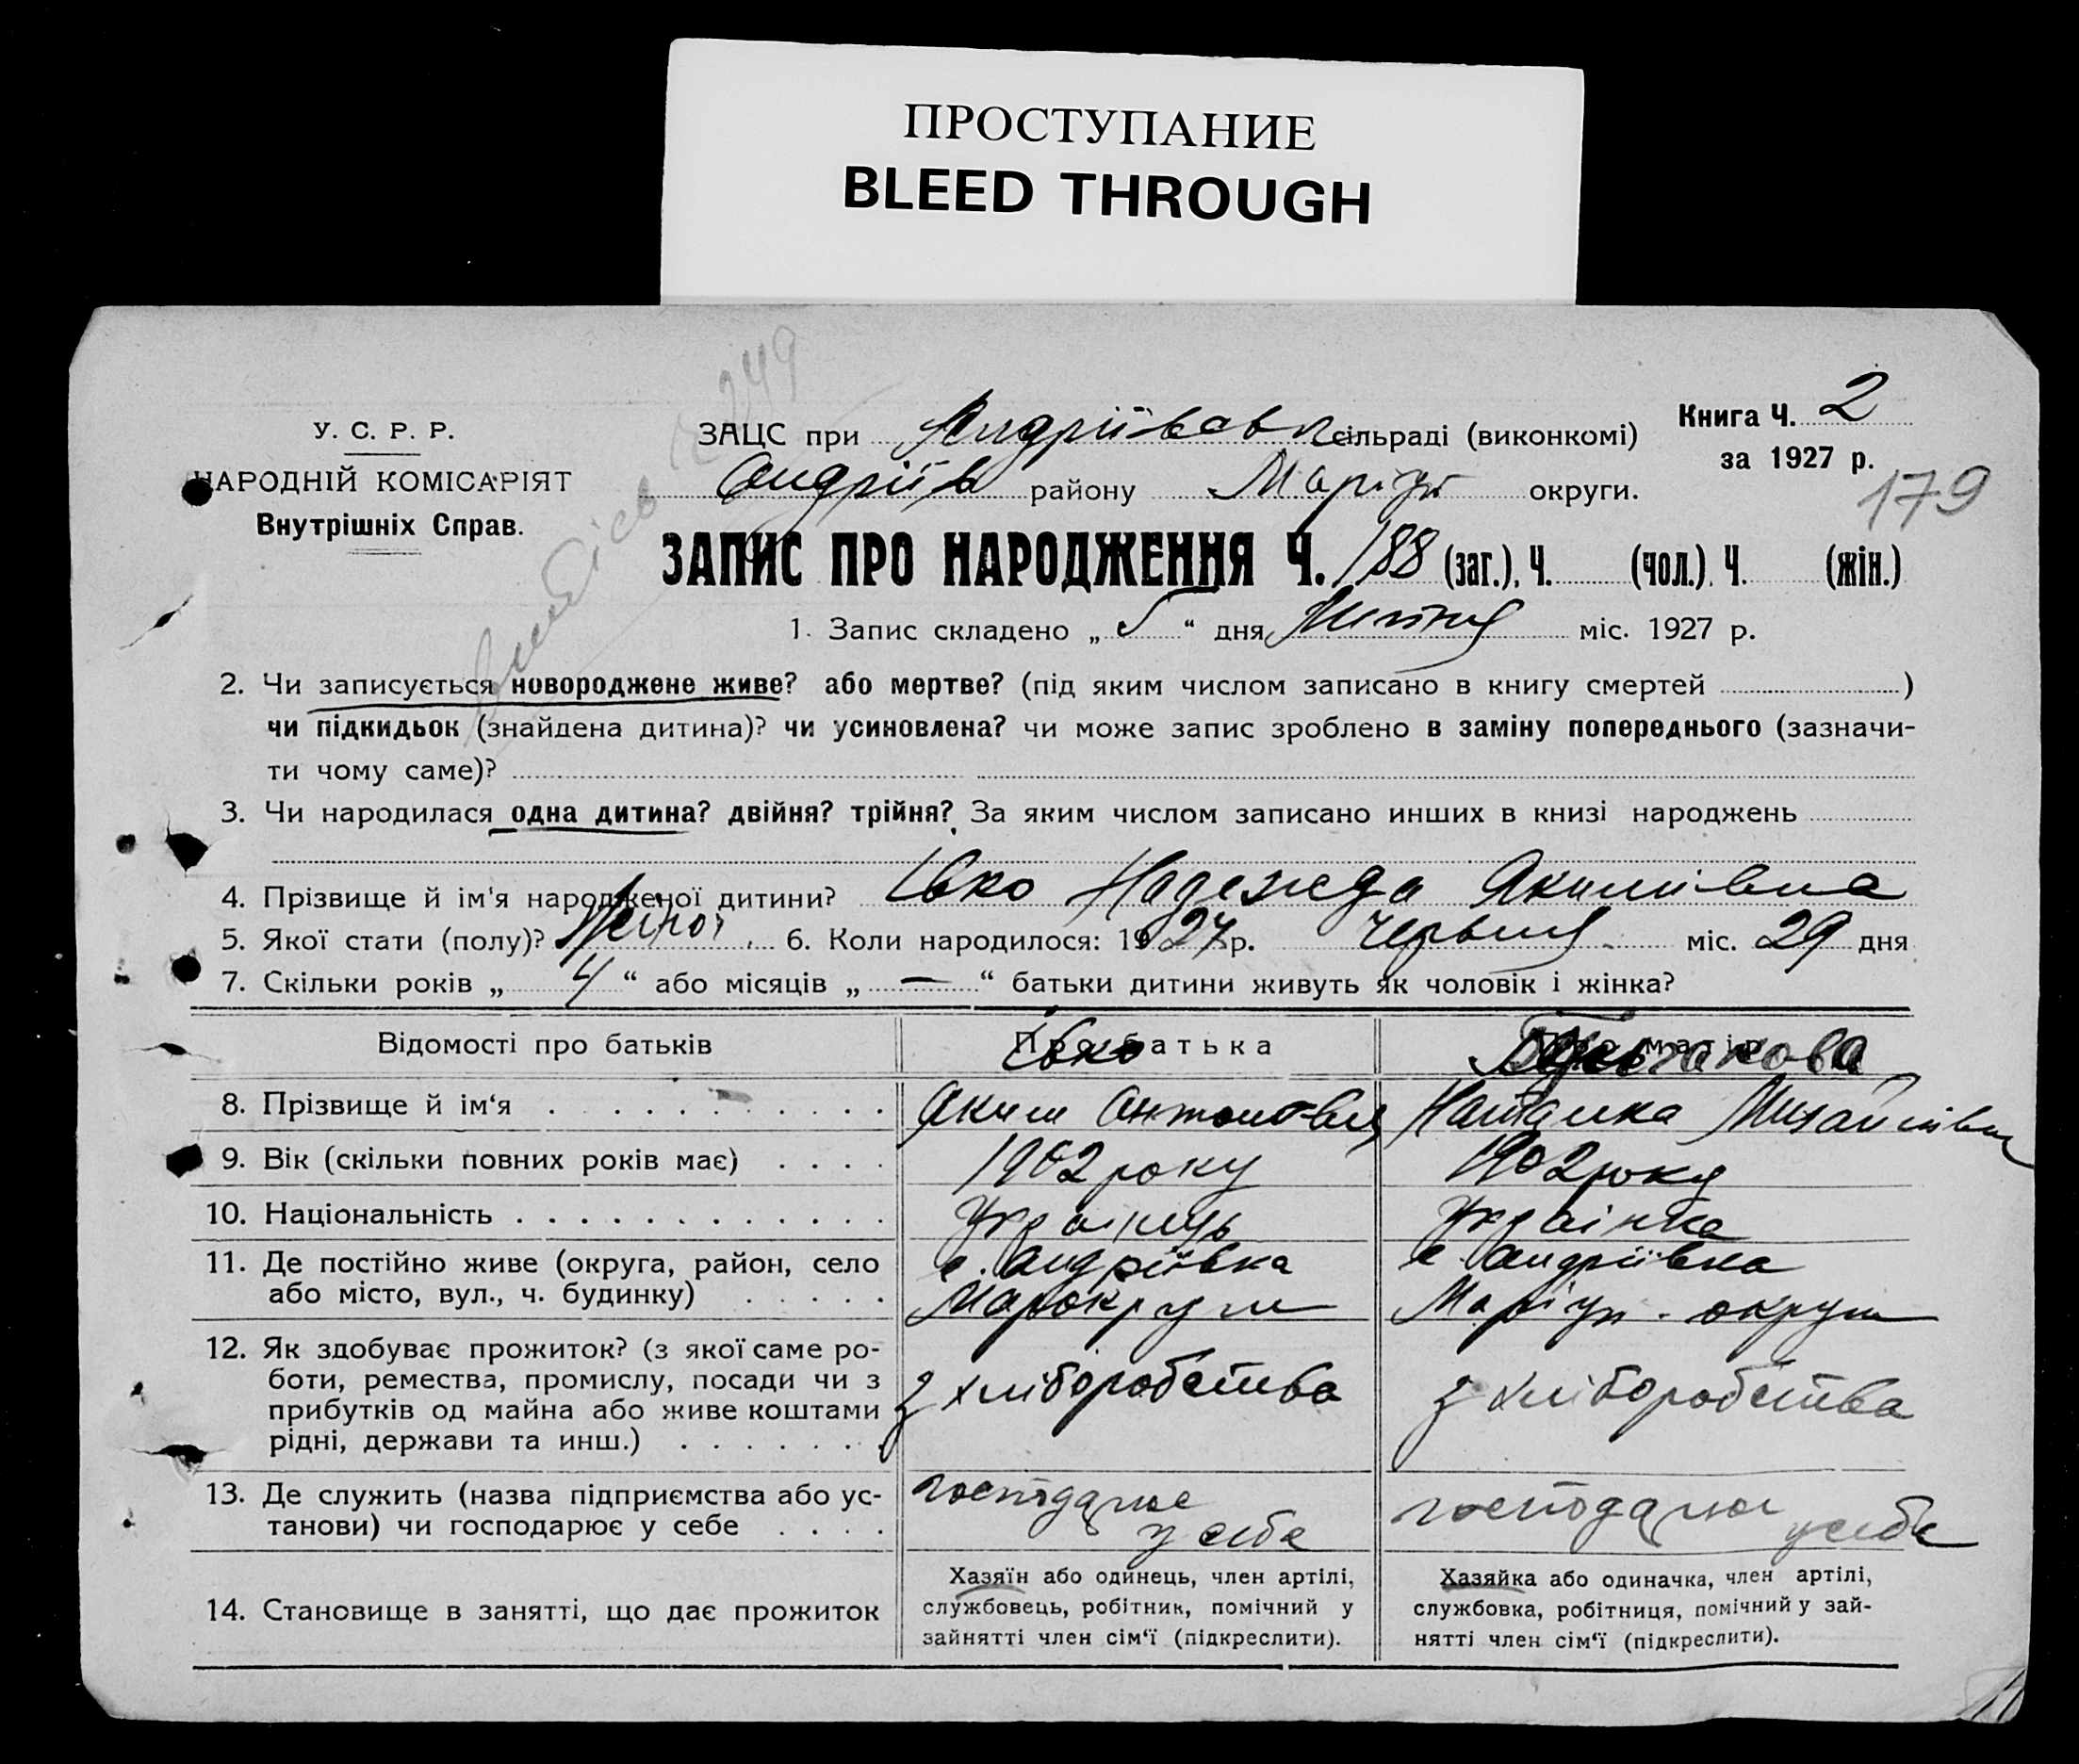 ПРОСТУПАНИЕ
BLEED THROUGH
У. С. Р. Р.
НАРОДНІЙ КОМІСАРІЯТ
Внутрішніх Справ.
ЗАЦС при Андріївськ сільраді (виконкомі)
Книга Ч. 2
за 1927 р.
Андріїв району Маріуп округи.
179
249
ЗАПИС ПРО НАРОДЖЕННЯ Ч. 188 (заг.), Ч. (чол.). Ч. (жін.)
1. Запис складено „ 5 “ дня Липня міс. 1927 р.
2. Чи записується новороджене живе? або мертве? (під яким числом записано в книгу смертей )
чи підкидьок (знайдена дитина)? чи усиновлена? чи може запис зроблено в заміну попереднього (зазначи-
ти чому саме)?
3. Чи народилася одна дитина? двійня? трійня? За яким числом записано инших в книзі народжень
4. Прізвище й ім'я народженої дитини? Івко Надежда Якимівна
5. Якої стати (полу)? Жіночої 6. Коли народилося: 1927 р. Червня міс. 29 дня
7. Скільки років „ 4 “ або місяців „ — “ батьки дитини живуть як чоловік і жінка?
Відомості про батьків Про батька Про матір
Івко
8. Прізвище й ім‘я Яким Антонович Наталка Михайлівна
9. Вік (скільки повних років має) 1902 року 1902 року
10. Національність Українець Українка
11. Де постійно живе (округа, район, село с. Андріївка с. Андріївка
або місто, вул., ч. будинку) Марокруги Маріуп. округи
12. Як здобуває прожиток? (з якої саме ро-
боти, ремества, промислу, посади чи з з хліборобства з хліборобства
прибутків од майна або живе коштами
рідні, держави та инш.)
13. Де служить (назва підприємства або ус- господарює господарює
танови) чи господарює у себе у себе у себе
14. Становище в занятті, що дає прожиток
Хазяїн або одинець, член артілі,
службовець, робітник, помічний у
зайнятті член сім‘ї (підкреслити).
Хазяйка або одиначка, член артілі,
службовка, робітниця, помічний у зай-
нятті член сім‘ї (підкреслити).